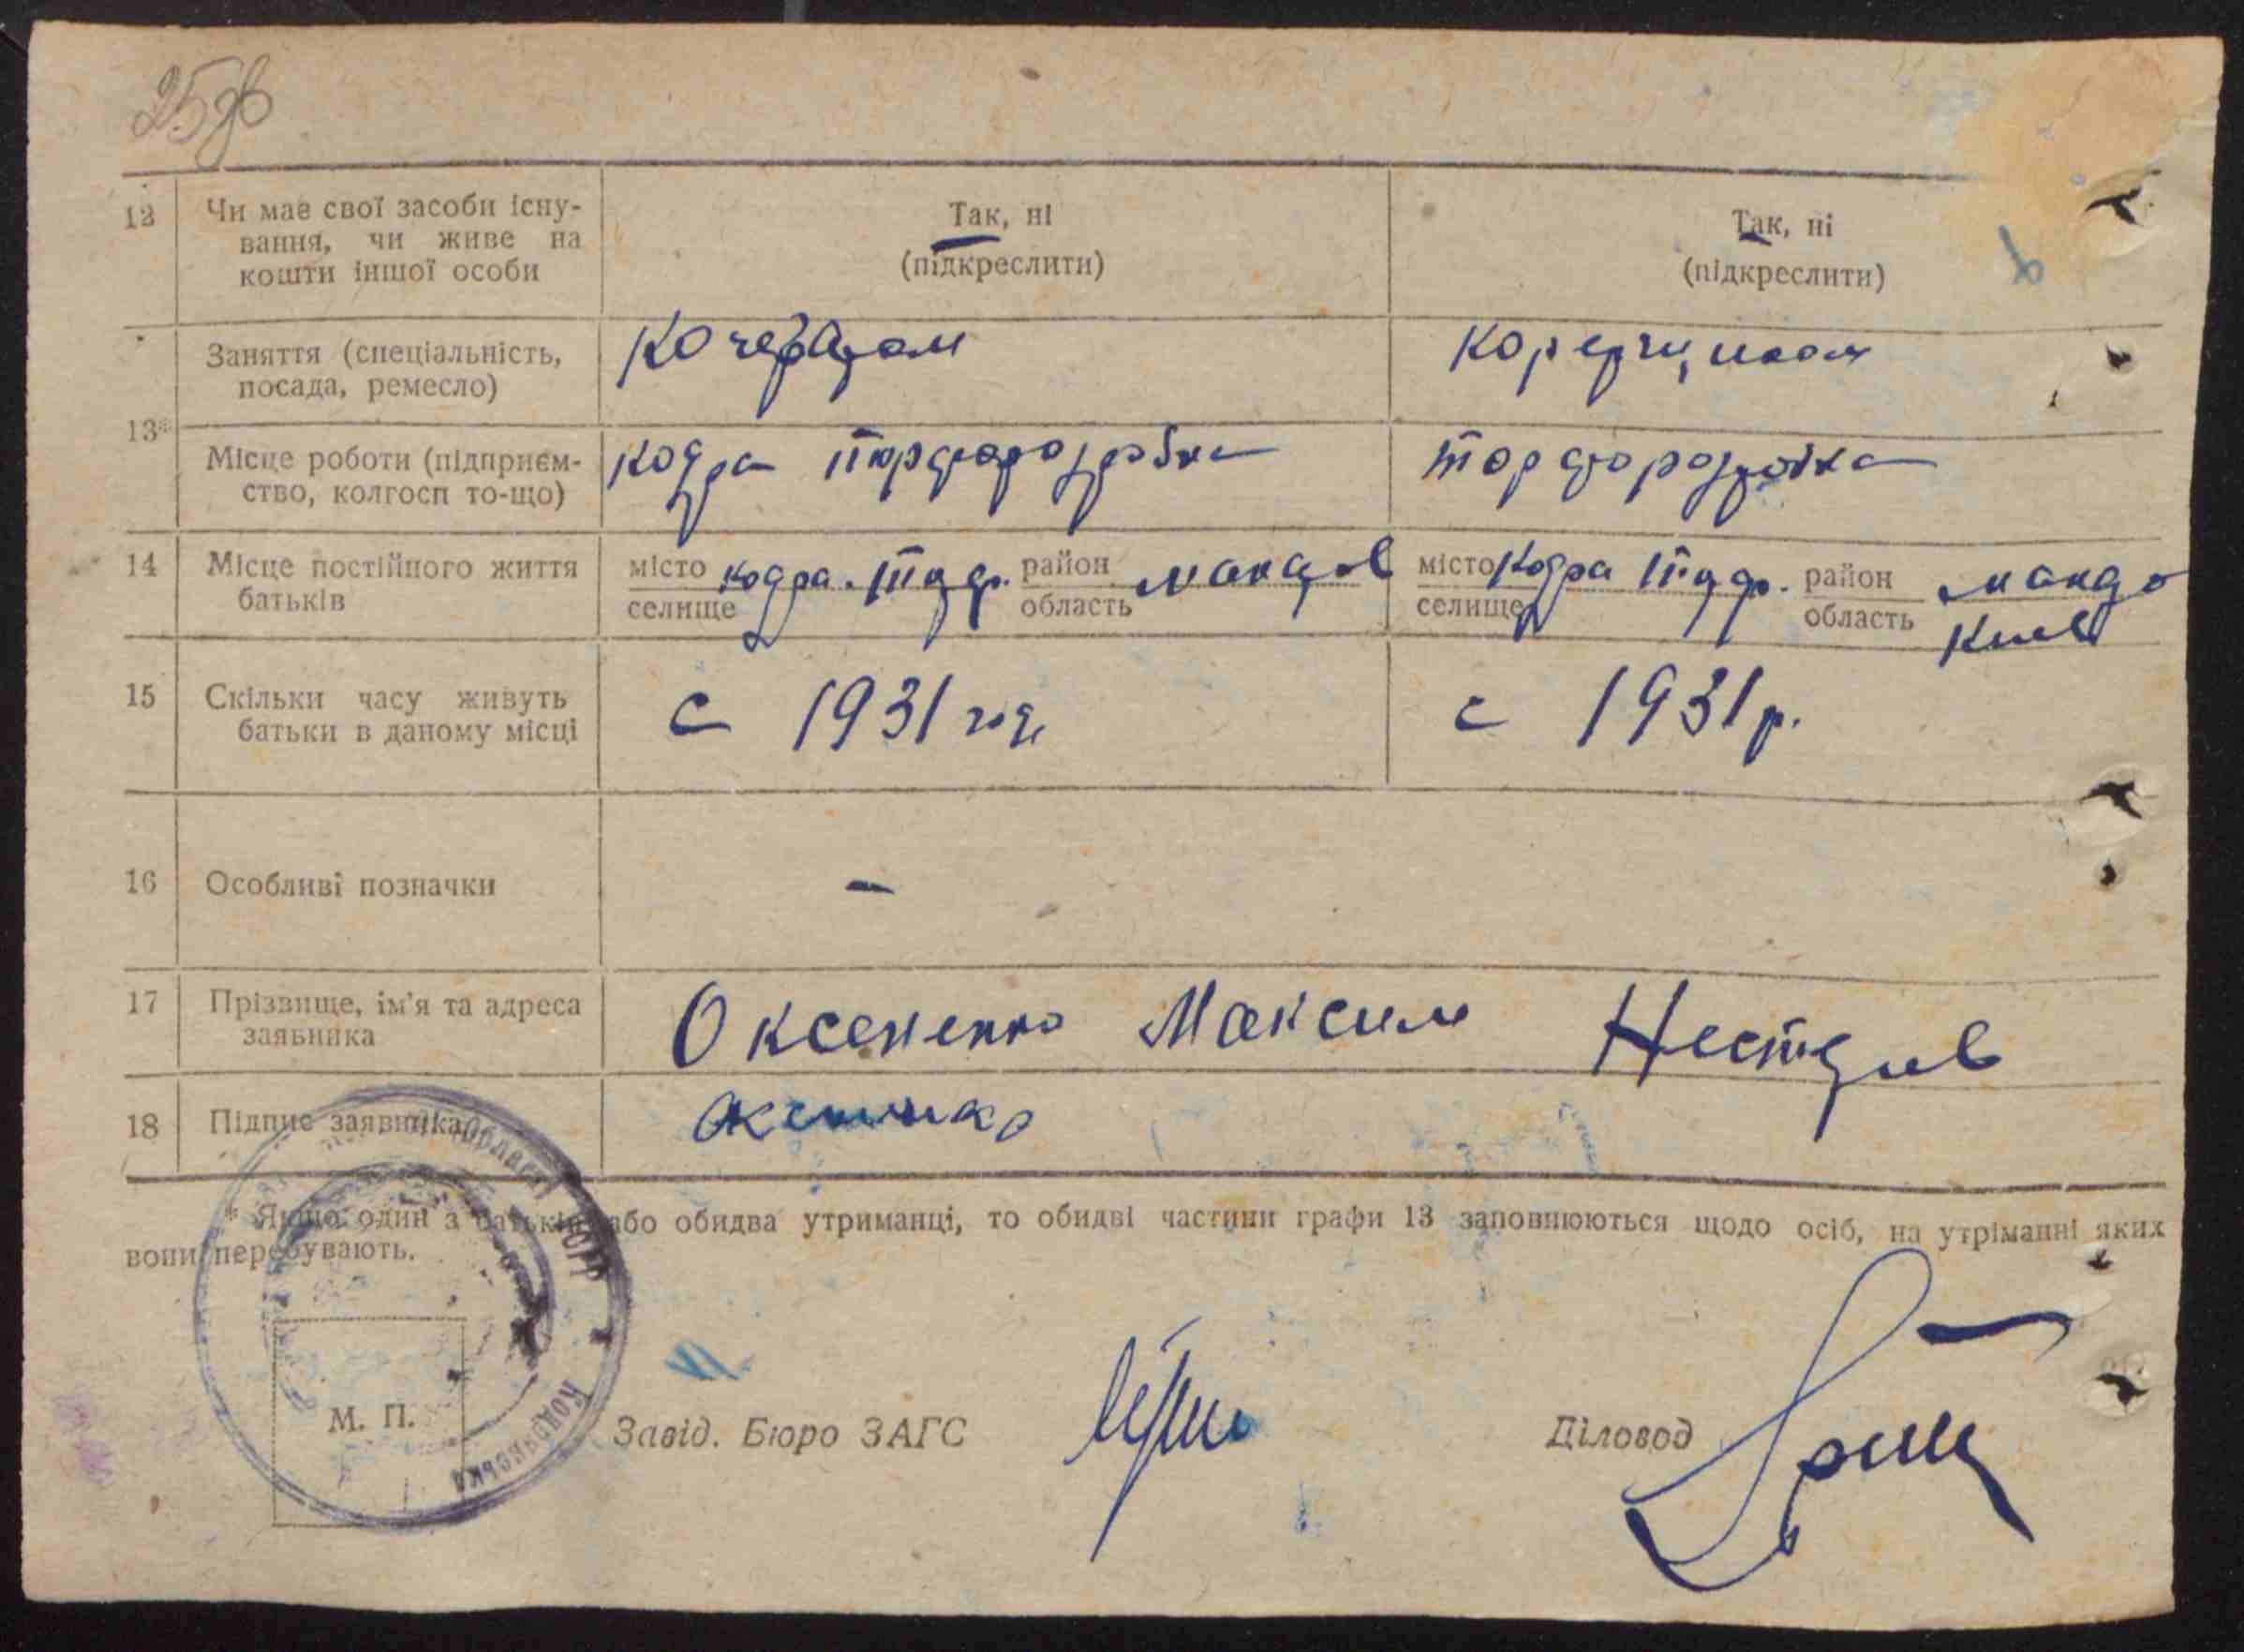 25 зв
12 Чи має свої засоби існу-
вання, чи живе на
кошти іншої особи
Так, ні
(підкреслити)
Так, ні
(підкреслити)
13*
Заняття (спеціальність,
посада, ремесло)
Кочегаром
Місце роботи (підприєм-
ство, колгосп то-що)
Кодра торфорозробка
торфорозробка
14 Місце постійного життя
батьків
місто
селище
кодра
район
область
макар
місто
селище
Кодра
район
область
Киев
15 Скільки часу живуть
батьки в даному місці
с 1931 году
с 1931 р.
16 Особливі позначки
-
17 Прізвище, ім'я та адреса
заявника
Оксененко Максим
18 Підпис заявника
* Якщо один з батьків або обидва утриманці, то обидві частини графи 13 заповнюються щодо осіб, на утріманні яких
вони перебувають.
області УСРР
Кодрянська
М. П.
Завід. Бюро ЗАГС
Діловод